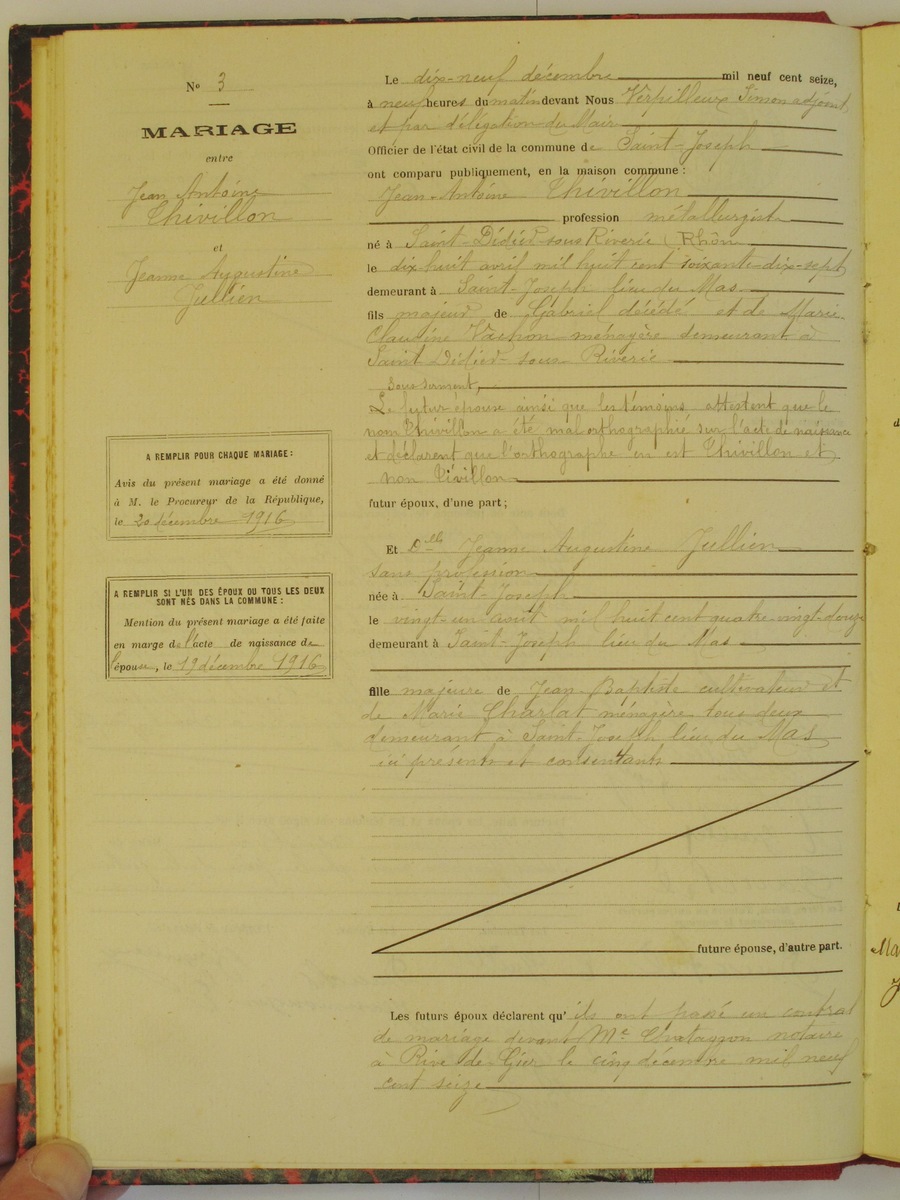 N° 3
MARIAGE
entre
Jean Antoine
Thivillon
et
Jeanne Augustine
Jullien
A REMPLIR POUR CHAQUE MARIAGE :
Avis du présent mariage a été donné
à M. le Procureur de la République,
le 20 décembre 1916
A REMPLIR SI L'UN DES ÉPOUX OU TOUS LES DEUX
SONT NÉS DANS LA COMMUNE :
Mention du présent mariage a été faite
en marge de l'acte de naissance de
l'épouse, le 19 décembre 1916
Le dix-neuf décembre mil neuf cent seize,
à neuf heures du matin devant Nous Verpilleux Simon adjoint
et par délégation du Maire
Officier de l'état civil de la commune de Saint-Joseph
ont comparu publiquement, en la maison commune :
Jean Antoine Thivillon
profession métallurgiste
né à Saint-Didier-sous Riverie (Rhône
le dix huit avril mil huit cent soixante-dix-sept
demeurant à Saint-Joseph lieu du Mas
fils majeur de Gabriel décédé et de Marie
Claudine Vachon ménagère demeurant à
Saint Didier-sous Riverie
Sous serment,
Le futur épouse ainsi que les témoins attestent que le
nom Thivillon a été mal orthographié sur l'acte de naissance
et déclarent que l'orthographe en est Thivillon et
non Tévillon
futur époux, d'une part ;
Et Delle Jeanne Augustine Jullien
sans profession
née à Saint-Joseph
le vingt-un août mil huit cent quatre-vingt-douze
demeurant à Saint-Joseph lieu du Mas
fille majeure de Jean-Baptiste cultivateur et
de Marie Charlat ménagère tous deux
demeurant à Saint-Joseph lieu du Mas
ici présents et consentants
future épouse, d'autre part.
Les futurs époux déclarent qu'ils ont passé un contrat
de mariage devant Me notaire
à Rive de Gier le cinq décembre mil neuf
cent seize